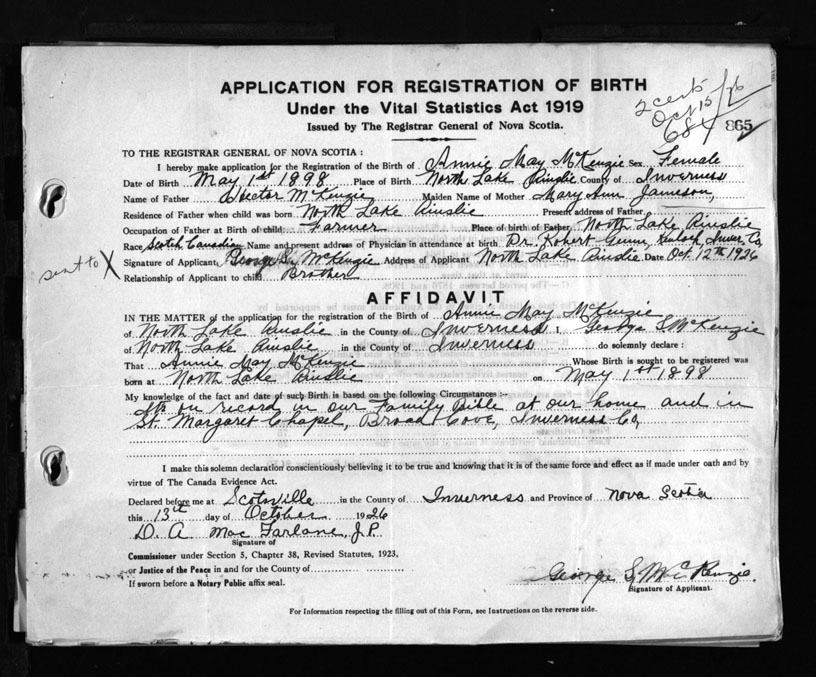 APPLICATION FOR REGISTRATION OF BIRTH
Under the Vital Statistics Act 1919
Issued by The Registrar General of Nova Scotia.
2 certs
Oct 15/26
68
865
TO THE REGISTRAR GENERAL OF NOVA SCOTIA :
I hereby make application for the Registration of the Birth of Annie May McKenzie Sex Female
Date of Birth May 1st 1898 Place of Birth North Lake Ainslie County of Inverness
Name of Father Hector McKenzie Maiden Name of Mother Mary Ann Jameson,
Residence of Father when child was born North Lake Ainslie Present address of Father
Occupation of Father at Birth of child: Farmer Place of birth of Father North Lake Ainslie
Race Scotch Canadian Name and present address of Physician in attendance at birth Dr. Robert Gunn, Inver. Co,
sent to X Signature of Applicant George S. McKenzie Address of Applicant North Lake Ainslie Date Oct. 12th 1926
Relationship of Applicant to child Brother
AFFIDAVIT
IN THE MATTER of the application for the registration of Birth of Annie May McKenzie
of North Lake Ainslie in the County of Inverness I, George S. McKenzie
of North Lake Ainslie in the County of Inverness do solemnly declare :
That Annie May McKenzie Whose Birth is sought to be registered was
born at North Lake Ainslie on May 1st 1898
My knowledge of the fact and date of such Birth is based on the following Circumstances :-
on record in our Family Bible at our home and in
St. Margaret Chapel, Broad Cove, Inverness Co,
I make this solemn declaration conscientiously believing it to be true and knowing that it is of the same force and effect as if made under oath and by
virtue of The Canada Evidence Act.
Declared before me at Scotsville in the County of Inverness and Province of Nova Scotia
this 13th day of October 1926
D. A. MacFarlane, J.P.
Signature of
Commissioner under Section 5, Chapter 38, Revised Statutes, 1923,
or Justice of the Peace in and for the County of
If sworn before a Notary Public affix seal.
George S. McKenzie.
Signature of Applicant.
For Information respecting the filling out of this Form, see Instructions on the reverse side.